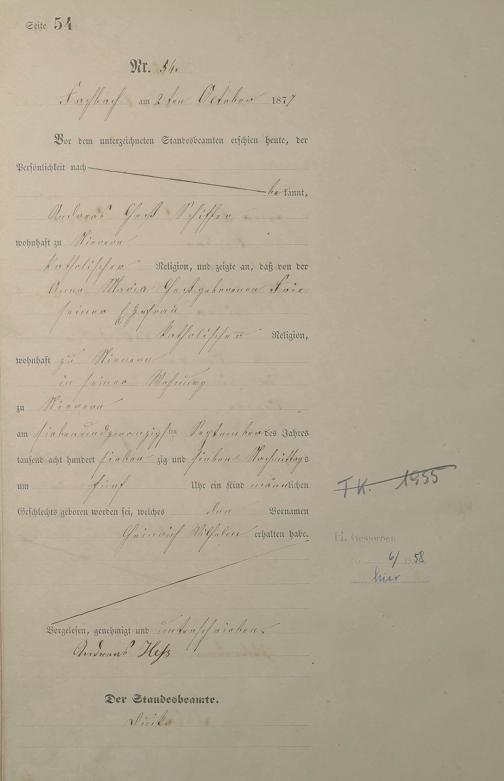 Seite 54
Nr. 54.
Fachbach am 2ten October 1877
Vor dem unterzeichneten Standesbeamten erschien heute, der
Persönlichkeit nach
bekannt,
Andreas Heß Schiffer
wohnhaft zu Nievern
katholischer Religion, und zeigte an, daß von der
Anna Maria Heß geborenen
seiner Ehefrau
katholischer Religion,
wohnhaft zu Nievern
in seiner Wohnung
zu Nievern
am siebenundzwanzigsten September des Jahres
tausend acht hundert siebenzig und sieben Nachmittags
um fünf Uhr ein Kind männlichen
Geschlechts geboren worden sei, welches den Vornamen
Heinrich Wilhelm erhalten habe.
Vorgelesen, genehmigt und unterschrieben.
Andreas Heß
Der Standesbeamte.
1955
Gestorben
6/ 1958
hier